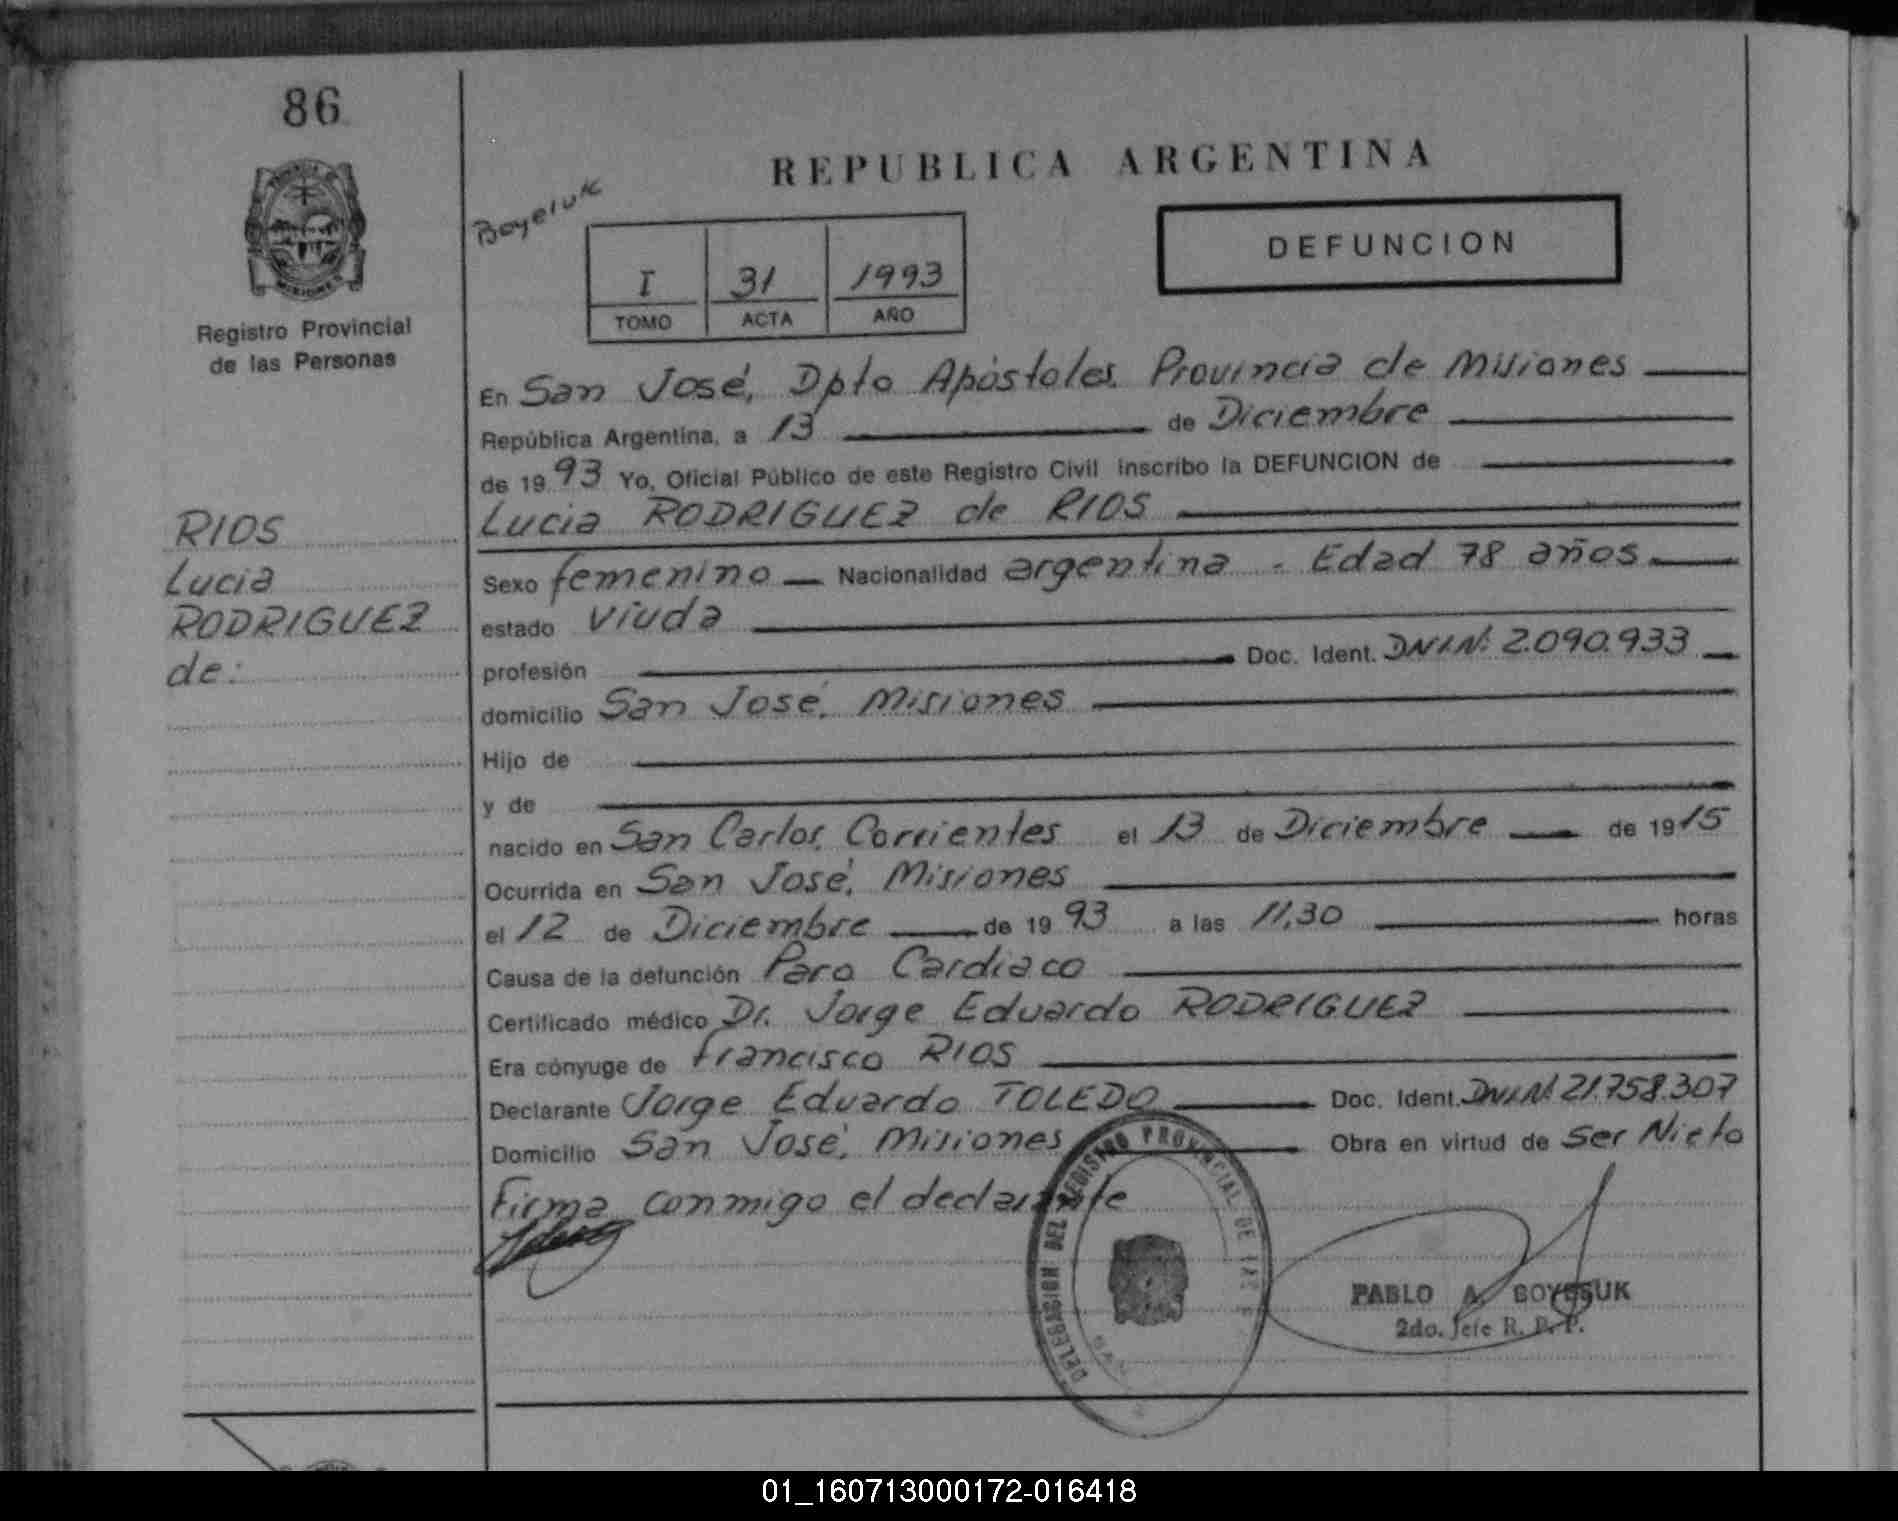 86
MISIONES
Registro Provincial
de las Personas
RIOS
Lucia
RODRIGUEZ
de:
REPUBLICA ARGENTINA
Boyeiuk
I 31 1993
TOMO ACTA AÑO
DEFUNCION
En San José, Dpto Apóstoles. Provincia de Misiones
República Argentina, a 13 de Diciembre
de 1993 Yo, Oficial Público de este Registro Civil inscribo la DEFUNCION de
Lucia RODRIGUEZ de RIOS
Sexo femenino Nacionalidad argentina - Edad 78 años
estado viuda
profesión Doc. Ident. DNIN: 2.090.933
domicilio San José, Misiones
Hijo de
y de
nacido en San Carlos, Corrientes el 13 de Diciembre de 1915
Ocurrida en San José, Misiones
el 12 de Diciembre de 1993 a las 11,30 horas
Causa de la defunción Paro Cardiaco
Certificado médico Dr. Jorge Eduardo RODRIGUEZ
Era cónyuge de Francisco RIOS
Declarante Jorge Eduardo TOLEDO Doc. Ident. DNIN: 21.758.307
Domicilio San José, Misiones Obra en virtud de Ser Nieto
Firma conmigo el declarante
DELEGACION DEL REGISTRO PROVINCIAL DE LAS
SAN
PABLO A. BOYESUK
2do. Jefe R. P. P.
01_160713000172-016418